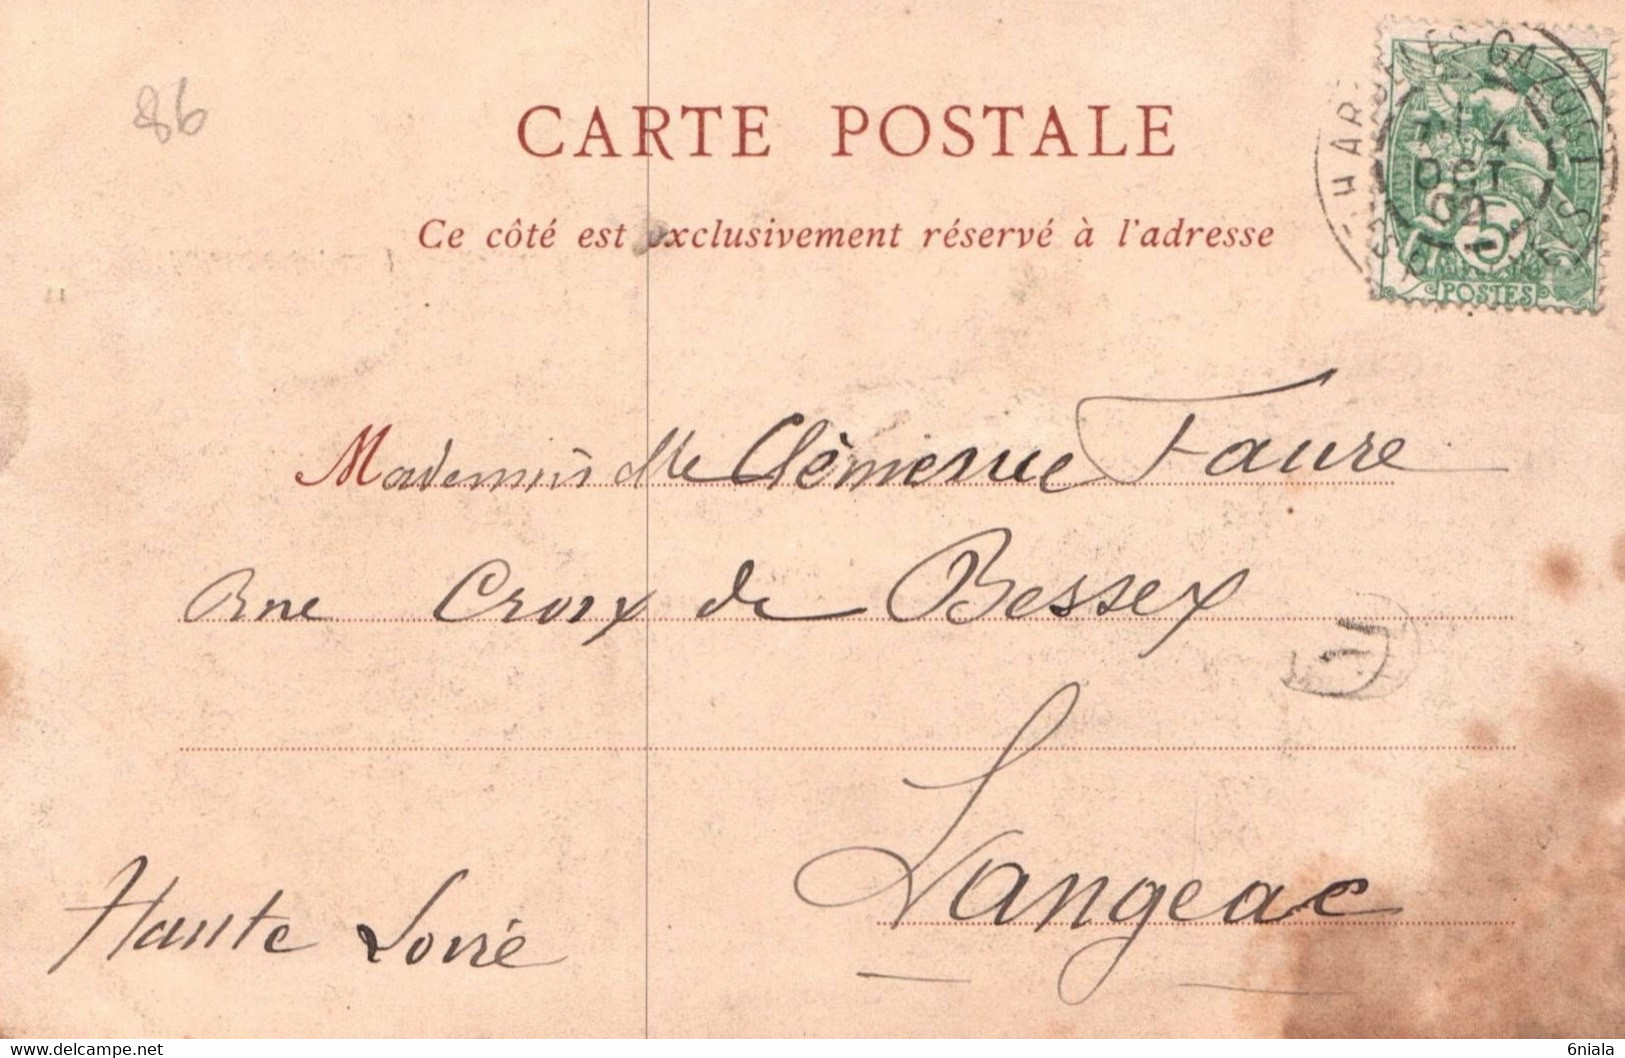 86
CARTE POSTALE
Ce côté est exclusivement réservé à l'adresse
4
OCT
02
5
POSTES
Mademoiselle Clémence Faure
Rue Croix de Bessey
Langeac
Haute Loire
© delcampe.net
6niala